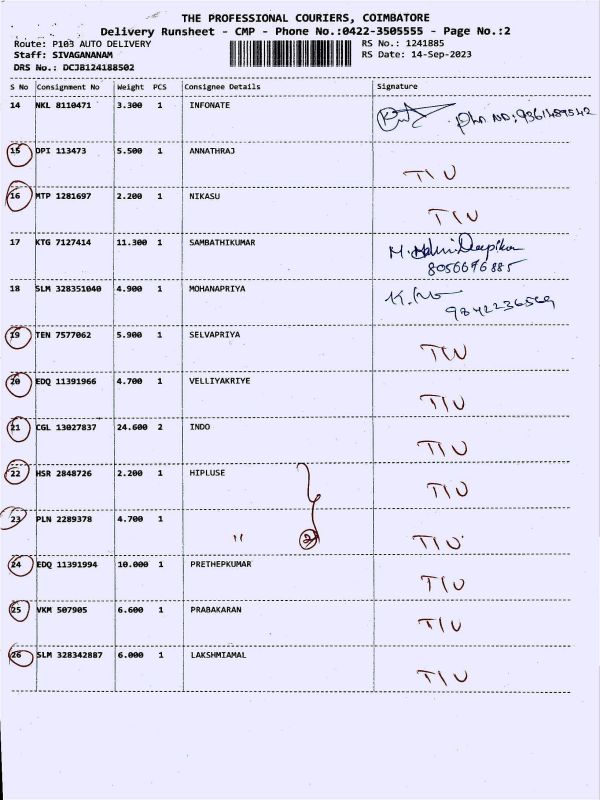 THE PROFESSIONAL COURIERS, COIMBATORE
Delivery Runsheet - CMP - Phone No.:0422-3505555 - Page No.:2
Route: P103 AUTO DELIVERY RS No.: 1241885
Staff: SIVAGANANAM RS Date: 14-Sep-2023
DRS No.: DCJB124188502
S No Consignment No Weight PCS Consignee Details Signature
14 NKL 8110471 3.300 1 INFONATE Phn NO: 9361489542
15 DPI 113473 5.500 1 ANNATHRAJ TIU
16 MTP 1281697 2.200 1 NIKASU TIU
17 KTG 7127414 11.300 1 SAMBATHIKUMAR 8056676885
18 SLM 328351040 4.900 1 MOHANAPRIYA 9842236569
19 TEN 7577062 5.900 1 SELVAPRIYA TIU
20 EDQ 11391966 4.700 1 VELLIYAKRIYE TIU
21 CGL 13027837 24.600 2 INDO TIU
22 HSR 2848726 2.200 1 HIPLUSE TIU
23 PLN 2289378 4.700 1 " 2 TIU
24 EDQ 11391994 10.000 1 PRETHEPKUMAR TIU
25 VKM 507905 6.600 1 PRABAKARAN TIU
26 SLM 328342887 6.000 1 LAKSHMIAMAL TIU